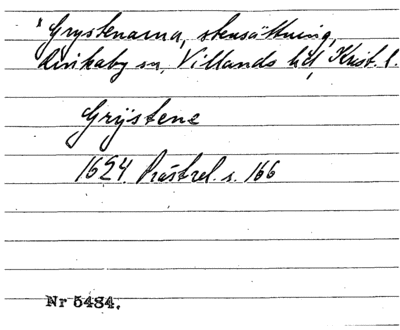 * Grystenarna, stensättning,
Rinkaby sn, Villands hd, Krist. l.
Grÿstene
1624 Prästrel. s. 166
Nr 5484.